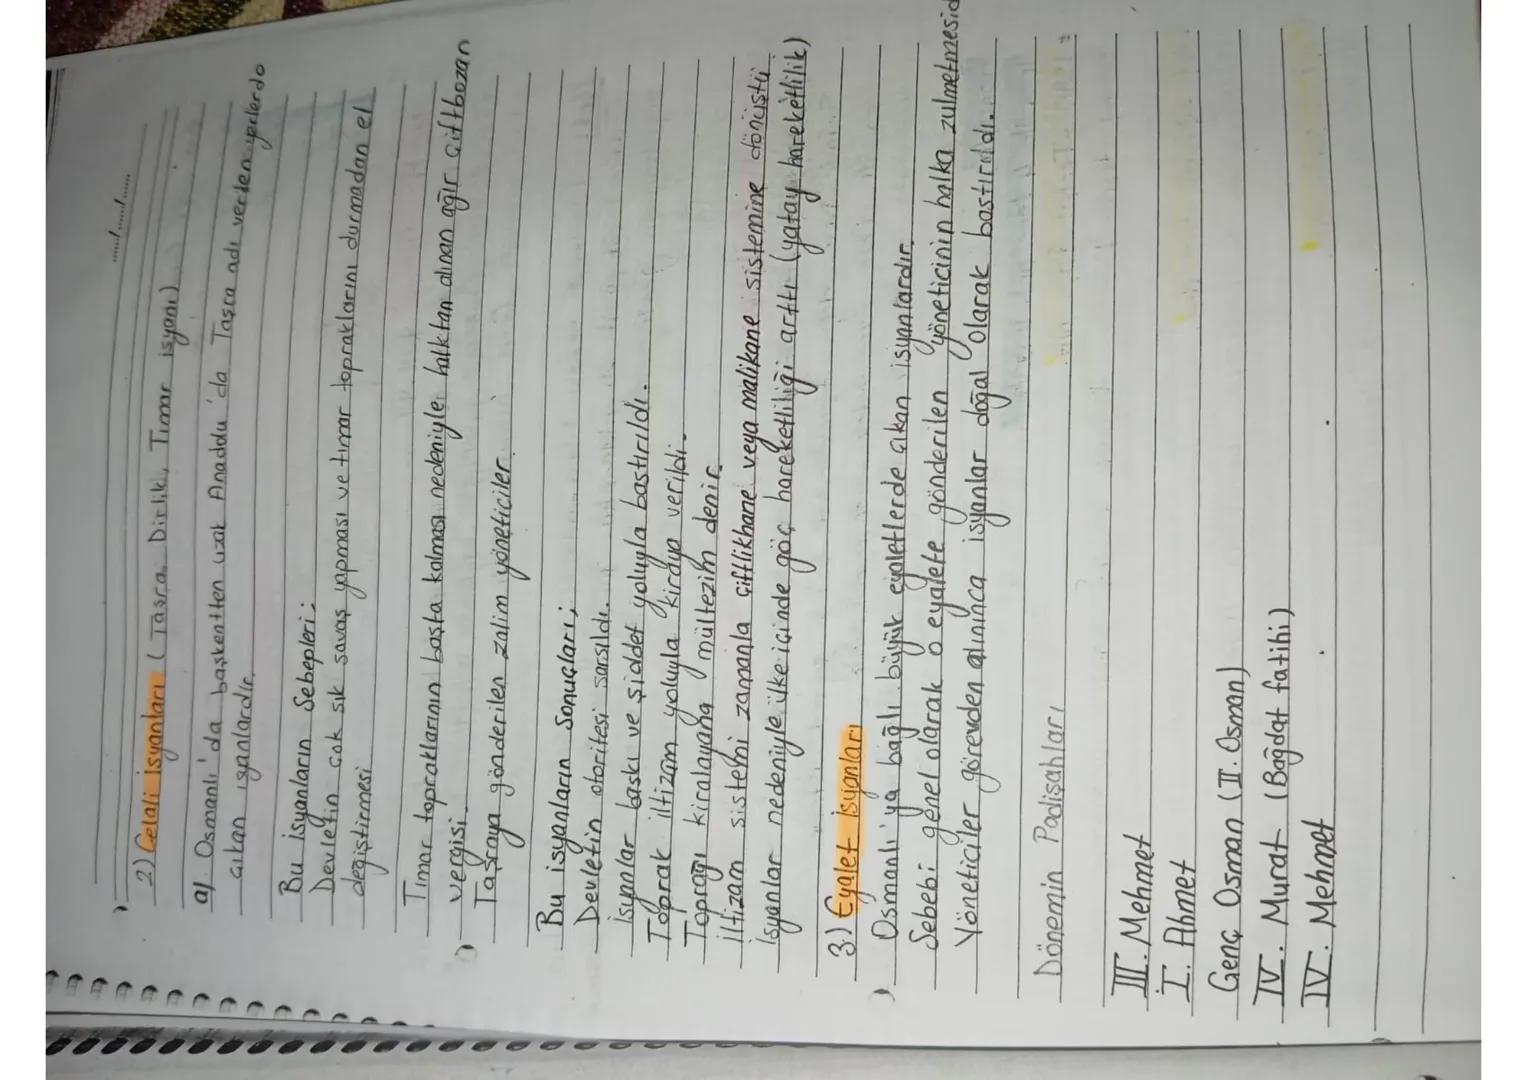 ....../....../......
2) Celali İsyanları (Taşra, Dirlik, Tımar isyanı)
a) Osmanlı'da başkentten uzak Anadolu'da Taşra adı verilen yerlerde
çıkan isyanlardır.
Bu isyanların Sebepleri:
Devletin çok sık savaş yapması ve tımar topraklarını durmadan el
değiştirmesi
Tımar topraklarının başta kalması nedeniyle halktan alınan ağır çiftbozan
vergisi.
Taşraya gönderilen zalim yöneticiler.
Bu isyanların Sonuçları;
Devletin otoritesi sarsıldı.
İsyanlar baskı ve şiddet yoluyla bastırıldı.
Toprak iltizam yoluyla kiraya verildi.
Toprağı kiralayana mültezim denir.
İltizam sistemi zamanla çiftlikhane veya malikane sistemine dönüştü
İsyanlar nedeniyle ülke içinde göç hareketliliği arttı (yatay hareketlilik)
3) Eyalet İsyanları
Osmanlı'ya bağlı büyük eyaletlerde çıkan isyanlardır.
Sebebi genel olarak o eyalete gönderilen yöneticinin halka zulmetmesid
Yöneticiler görevden alınınca isyanlar doğal olarak bastırıldı.
Dönemin Padişahları
III. Mehmet
I. Ahmet
Genç Osman (II. Osman)
IV. Murat (Bağdat fatihi)
IV. Mehmet